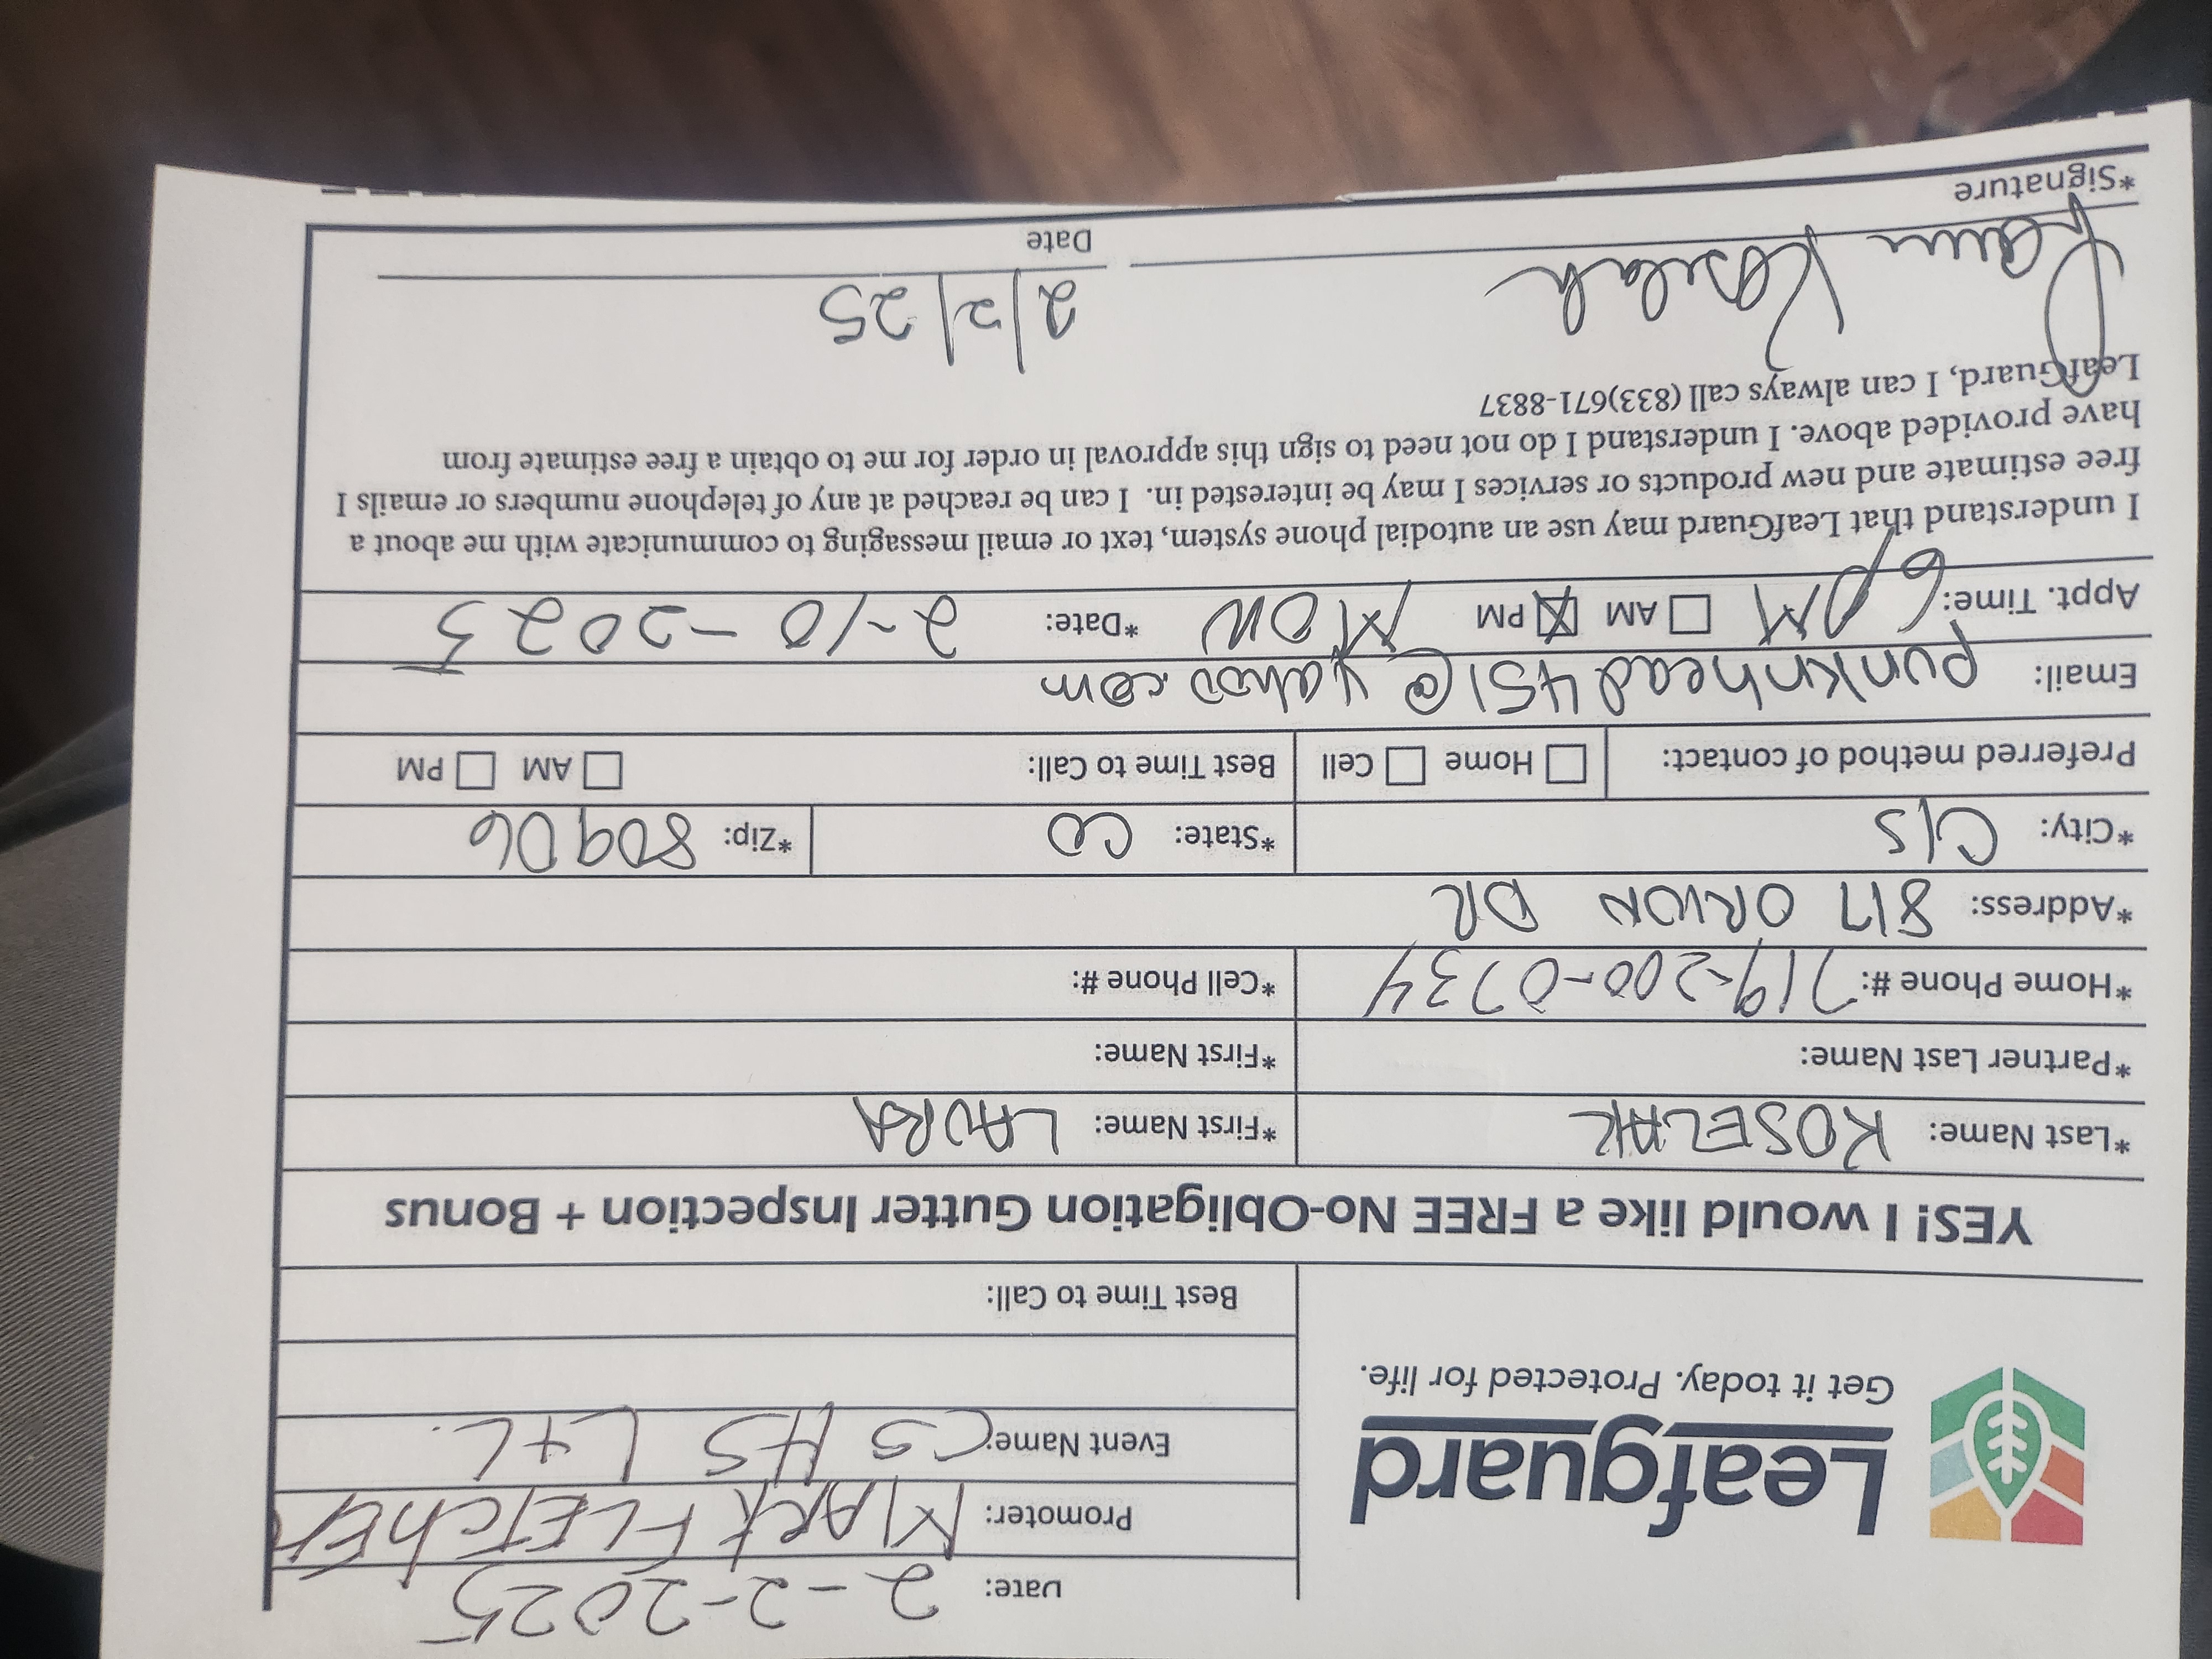 Leafguard
Get it today. Protected for life.
Date: 2-2-2025
Promoter: MARK FLETCHER
Event Name: CS HS L+L.
Best Time to Call:
YES! I would like a FREE No-Obligation Gutter Inspection + Bonus
*Last Name: KOSELAK *First Name: LAURA
*Partner Last Name: *First Name:
*Home Phone #: 719-200-0734 *Cell Phone #:
*Address: 817 ORWON DR
*City: C/S *State: CO *Zip: 80906
Preferred method of contact: Home Cell Best Time to Call: AM PM
Email: punknhead451@yahoo.com
Appt. Time: 6 PM AM PM MON *Date: 2-10-2025
I understand that LeafGuard may use an autodial phone system, text or email messaging to communicate with me about a
free estimate and new products or services I may be interested in. I can be reached at any of telephone numbers or emails I
have provided above. I understand I do not need to sign this approval in order for me to obtain a free estimate from
LeafGuard, I can always call (833)671-8837
Koselak 2/2/25
*Signature Date